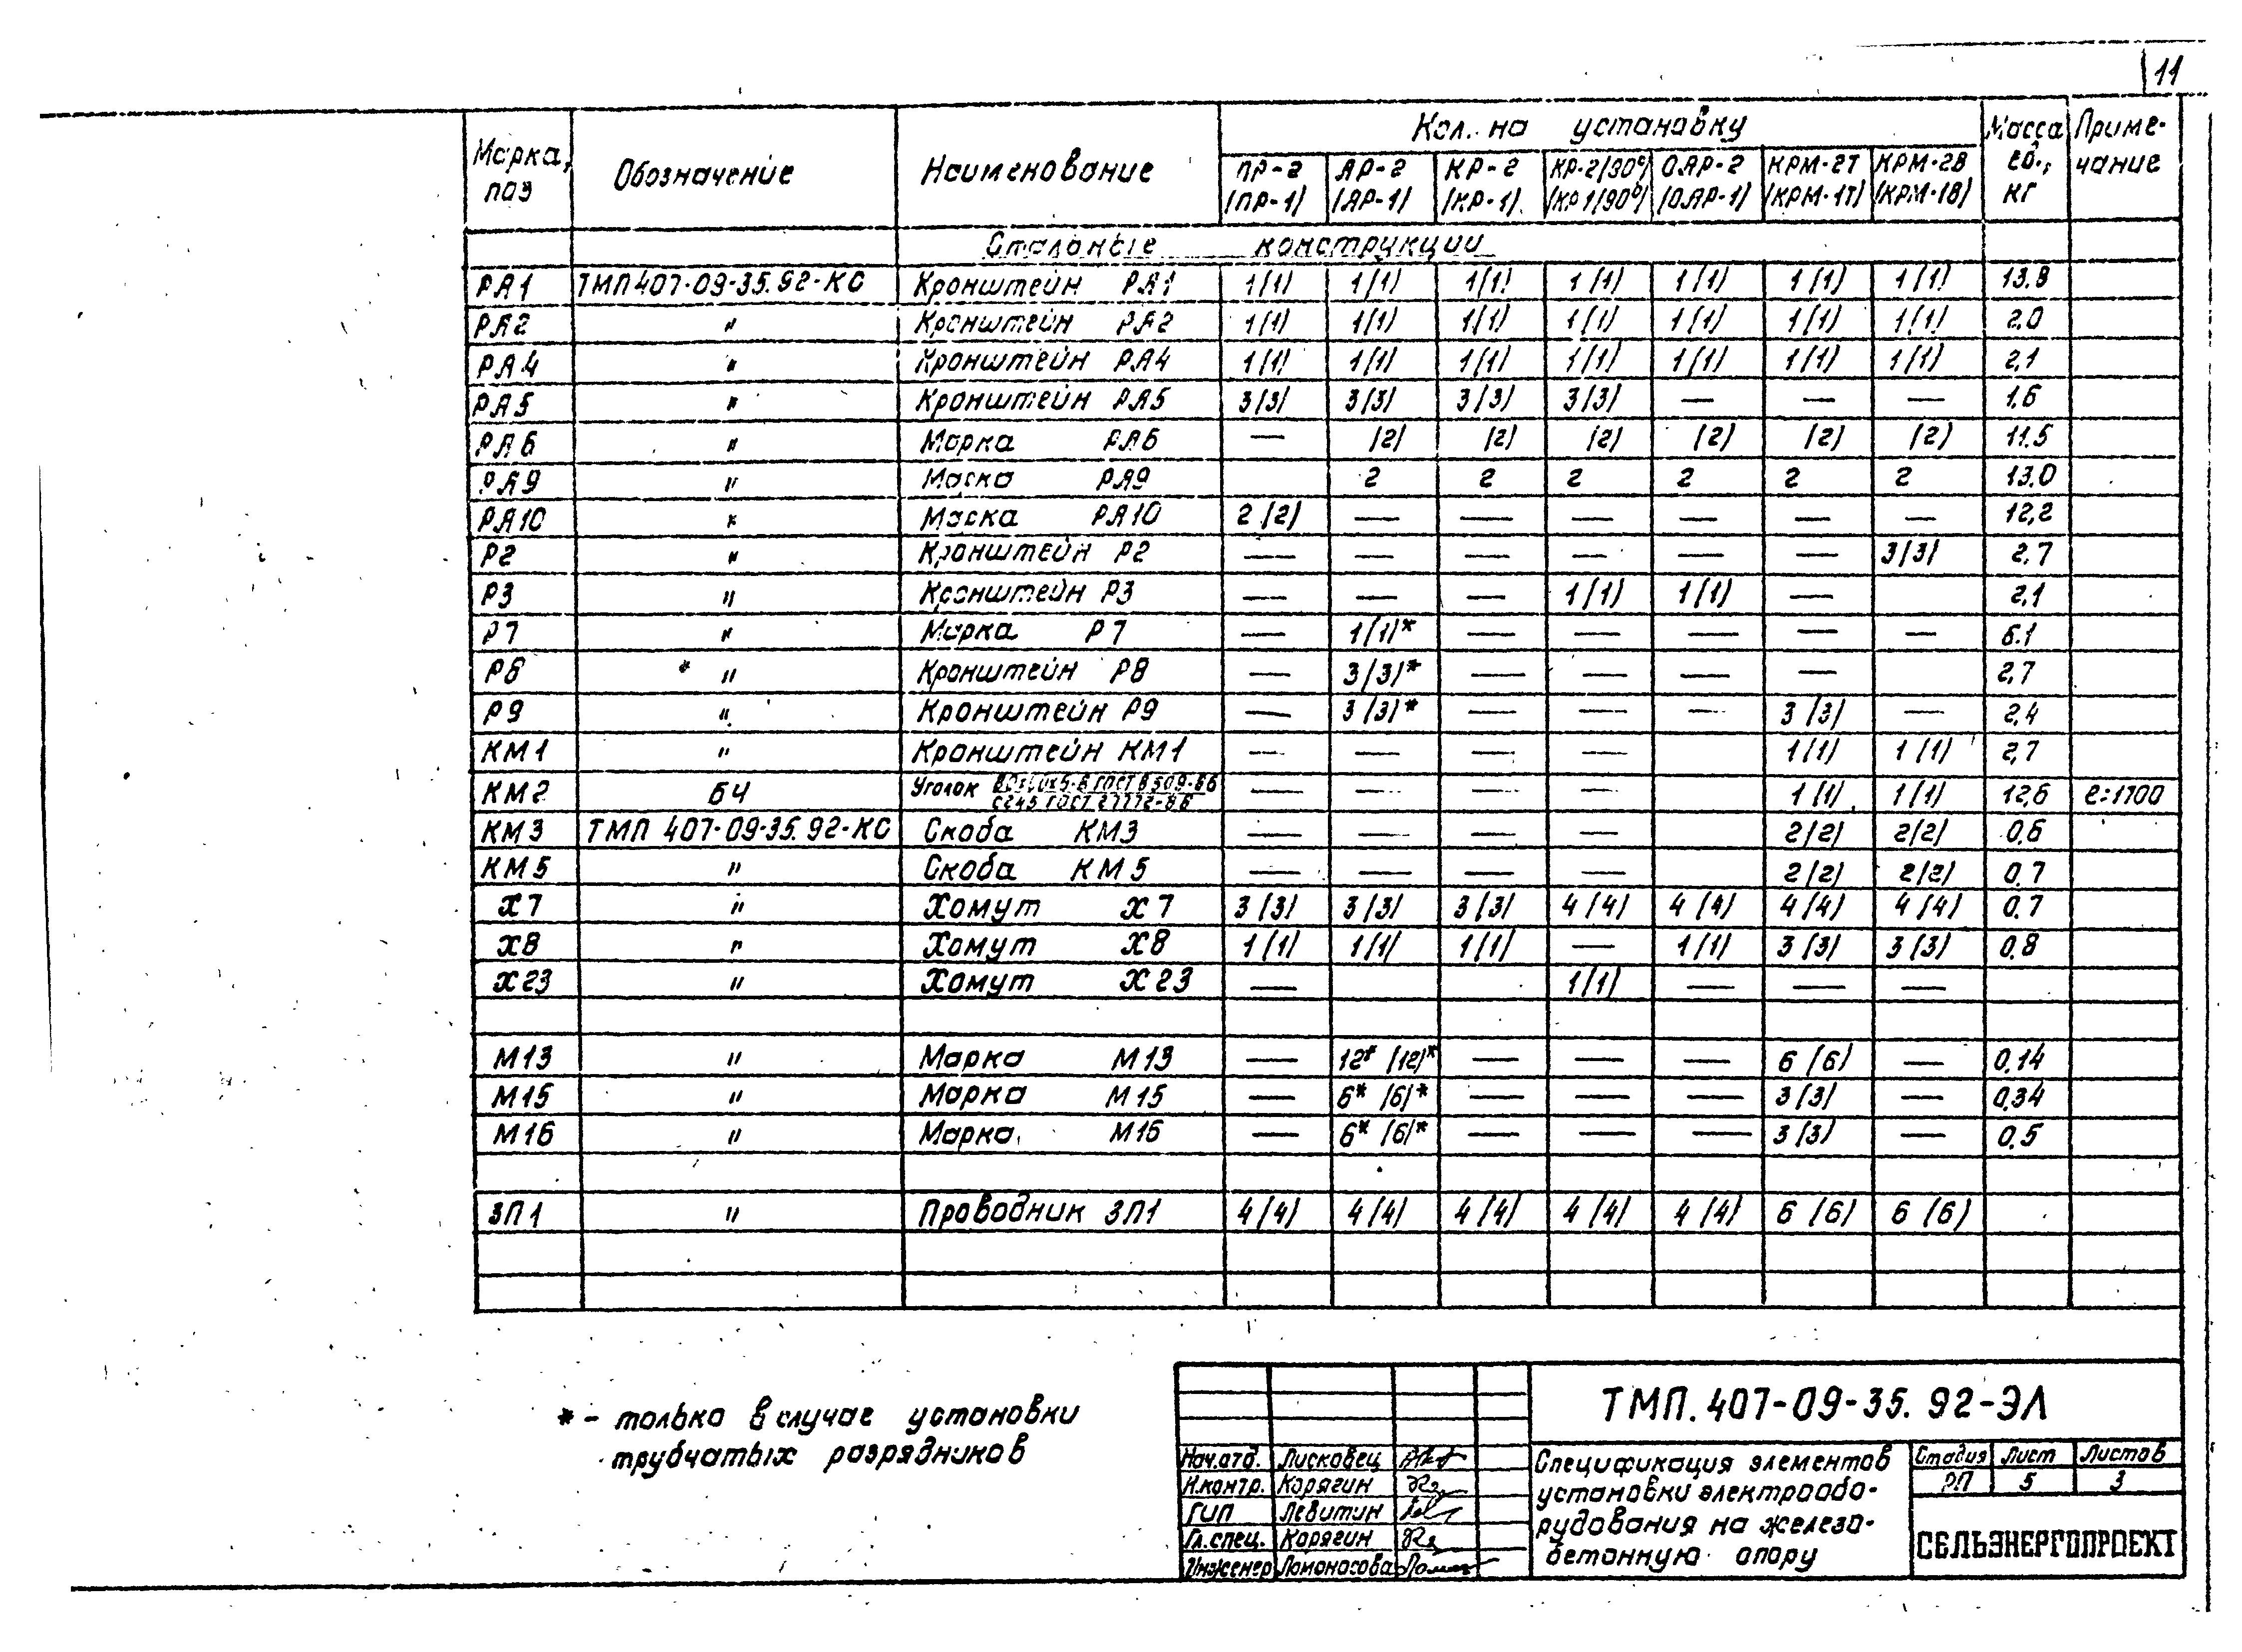 11
Марка, поз Обозначение Наименование Кол. на установку Масса ед., кг Приме-чание
ПР-2 (ПР-1) АР-2 (АР-1) КР-2 (КР-1) КР-2(90°) (КР1(90°) ОАР-2 (ОАР-1) КРМ-2Т (КРМ-1Т) КРМ-2В (КРМ-1В)
Стальные конструкции
РА1 ТМП407-09-35.92-КС Кронштейн РА1 1(1) 1(1) 1(1) 1(1) 1(1) 1(1) 1(1) 13.8
РА2 " Кронштейн РА2 1(1) 1(1) 1(1) 1(1) 1(1) 1(1) 1(1) 2.0
РА4 " Кронштейн РА4 1(1) 1(1) 1(1) 1(1) 1(1) 1(1) 1(1) 2,1
РА5 " Кронштейн РА5 3(3) 3(3) 3(3) 3(3) — — — 1,6
РА6 " Марка РА6 — (2) (2) (2) (2) (2) (2) 11.5
РА9 " Марка РА9 2 2 2 2 2 2 13.0
РА10 " Марка РА10 2(2) — — — — — — 12,2
Р2 " Кронштейн Р2 — — — — — — 3(3) 2,7
Р3 " Кронштейн Р3 — — — 1(1) 1(1) — 2,1
Р7 " Марка Р7 — 1(1)* — — — — — 6.1
Р8 " Кронштейн Р8 — 3(3)* — — — — 2,7
Р9 " Кронштейн Р9 — 3(3)* — — — 3(3) — 2,4
КМ1 " Кронштейн КМ1 — — — — 1(1) 1(1) 2,7
КМ2 БЧ Уголок ГОСТ 8509-86 С245 ГОСТ 27772-88 — — — — 1(1) 1(1) 12,6 ℓ=1700
КМ3 ТМП 407-09-35.92-КС Скоба КМ3 — — — — 2(2) 2(2) 0,6
КМ5 " Скоба КМ5 — — — — 2(2) 2(2) 0.7
Х7 " Хомут Х7 3(3) 3(3) 3(3) 4(4) 4(4) 4(4) 4(4) 0.7
Х8 " Хомут Х8 1(1) 1(1) 1(1) — 1(1) 3(3) 3(3) 0.8
Х23 " Хомут Х23 — 1(1) — — —
М13 " Марка М13 — 12* (12)* — — — 6(6) — 0.14
М15 " Марка М15 — 6* (6)* — — — 3(3) — 0,34
М16 " Марка М16 — 6* (6)* — — — 3(3) — 0.5
ЗП1 " Проводник ЗП1 4(4) 4(4) 4(4) 4(4) 4(4) 6(6) 6(6)
* - только в случае установки
трубчатых разрядников
ТМП.407-09-35.92-ЭЛ
Нач.отд. Лисковец
Н.контр. Корягин
ГИП Левитин
Гл.спец. Корягин
Инженер Ломоносова
Спецификация элементов
установки электрообо-
рудования на железо-
бетонную опору
Стадия Лист Листов
РП 5 3
СЕЛЬЭНЕРГОПРОЕКТ